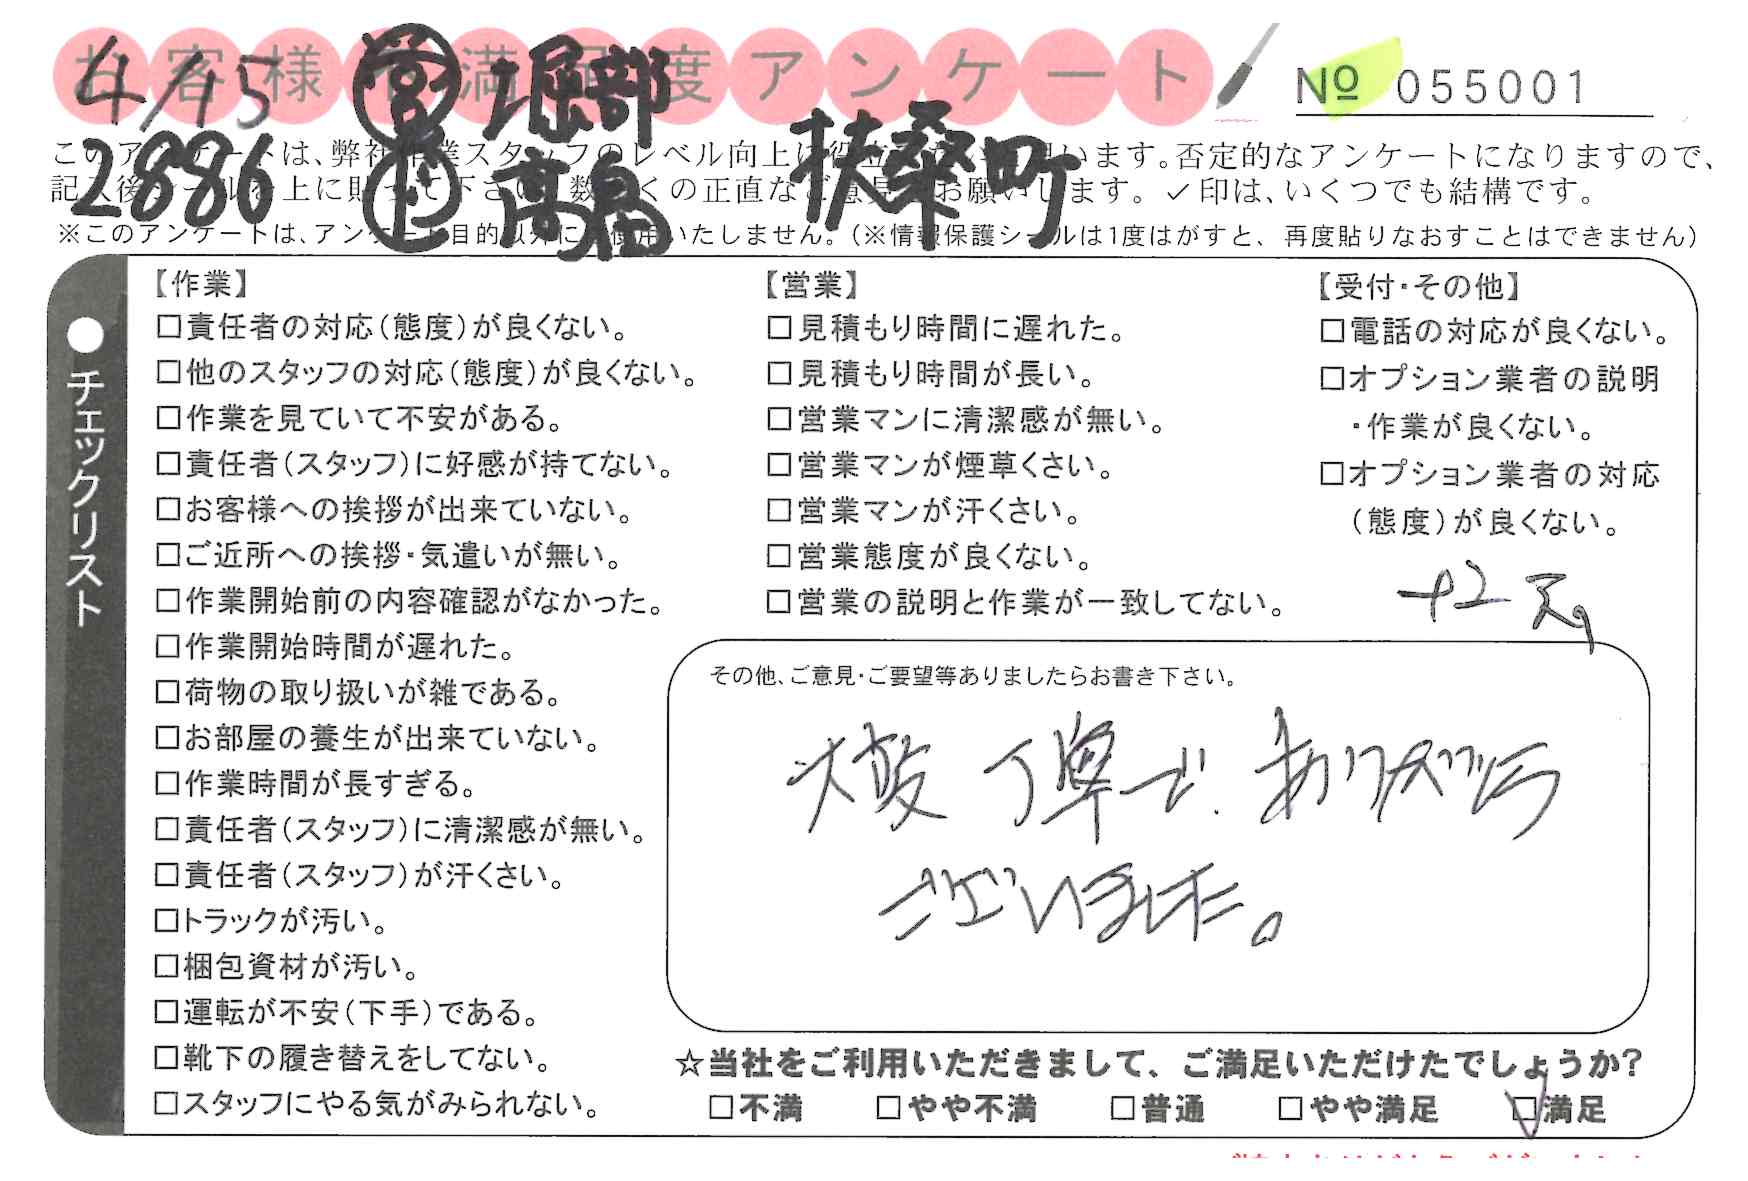 お客様不満足度アンケート
№ 055001
4/15 営 堀部
扶桑町
2886 高島
このアンケートは、弊社作業スタッフのレベル向上に役立てたいと思います。否定的なアンケートになりますので、
記入後シールを上に貼って下さい。数多くの正直なご意見をお願いします。✓印は、いくつでも結構です。
※このアンケートは、アンケート目的以外に使用いたしません。(※情報保護シールは1度はがすと、再度貼りなおすことはできません)
●チェックリスト
【作業】
□責任者の対応(態度)が良くない。
□他のスタッフの対応(態度)が良くない。
□作業を見ていて不安がある。
□責任者(スタッフ)に好感が持てない。
□お客様への挨拶が出来ていない。
□ご近所への挨拶・気遣いが無い。
□作業開始前の内容確認がなかった。
□作業開始時間が遅れた。
□荷物の取り扱いが雑である。
□お部屋の養生が出来ていない。
□作業時間が長すぎる。
□責任者(スタッフ)に清潔感が無い。
□責任者(スタッフ)が汗くさい。
□トラックが汚い。
□梱包資材が汚い。
□運転が不安(下手)である。
□靴下の履き替えをしてない。
□スタッフにやる気がみられない。
【営業】
□見積もり時間に遅れた。
□見積もり時間が長い。
□営業マンに清潔感が無い。
□営業マンが煙草くさい。
□営業マンが汗くさい。
□営業態度が良くない。
□営業の説明と作業が一致してない。
【受付・その他】
□電話の対応が良くない。
□オプション業者の説明
・作業が良くない。
□オプション業者の対応
(態度)が良くない。
+2
その他、ご意見・ご要望等ありましたらお書き下さい。
大変丁寧で、ありがとう
ございました。
☆当社をご利用いただきまして、ご満足いただけたでしょうか?
□不満 □やや不満 □普通 □やや満足 ☑満足